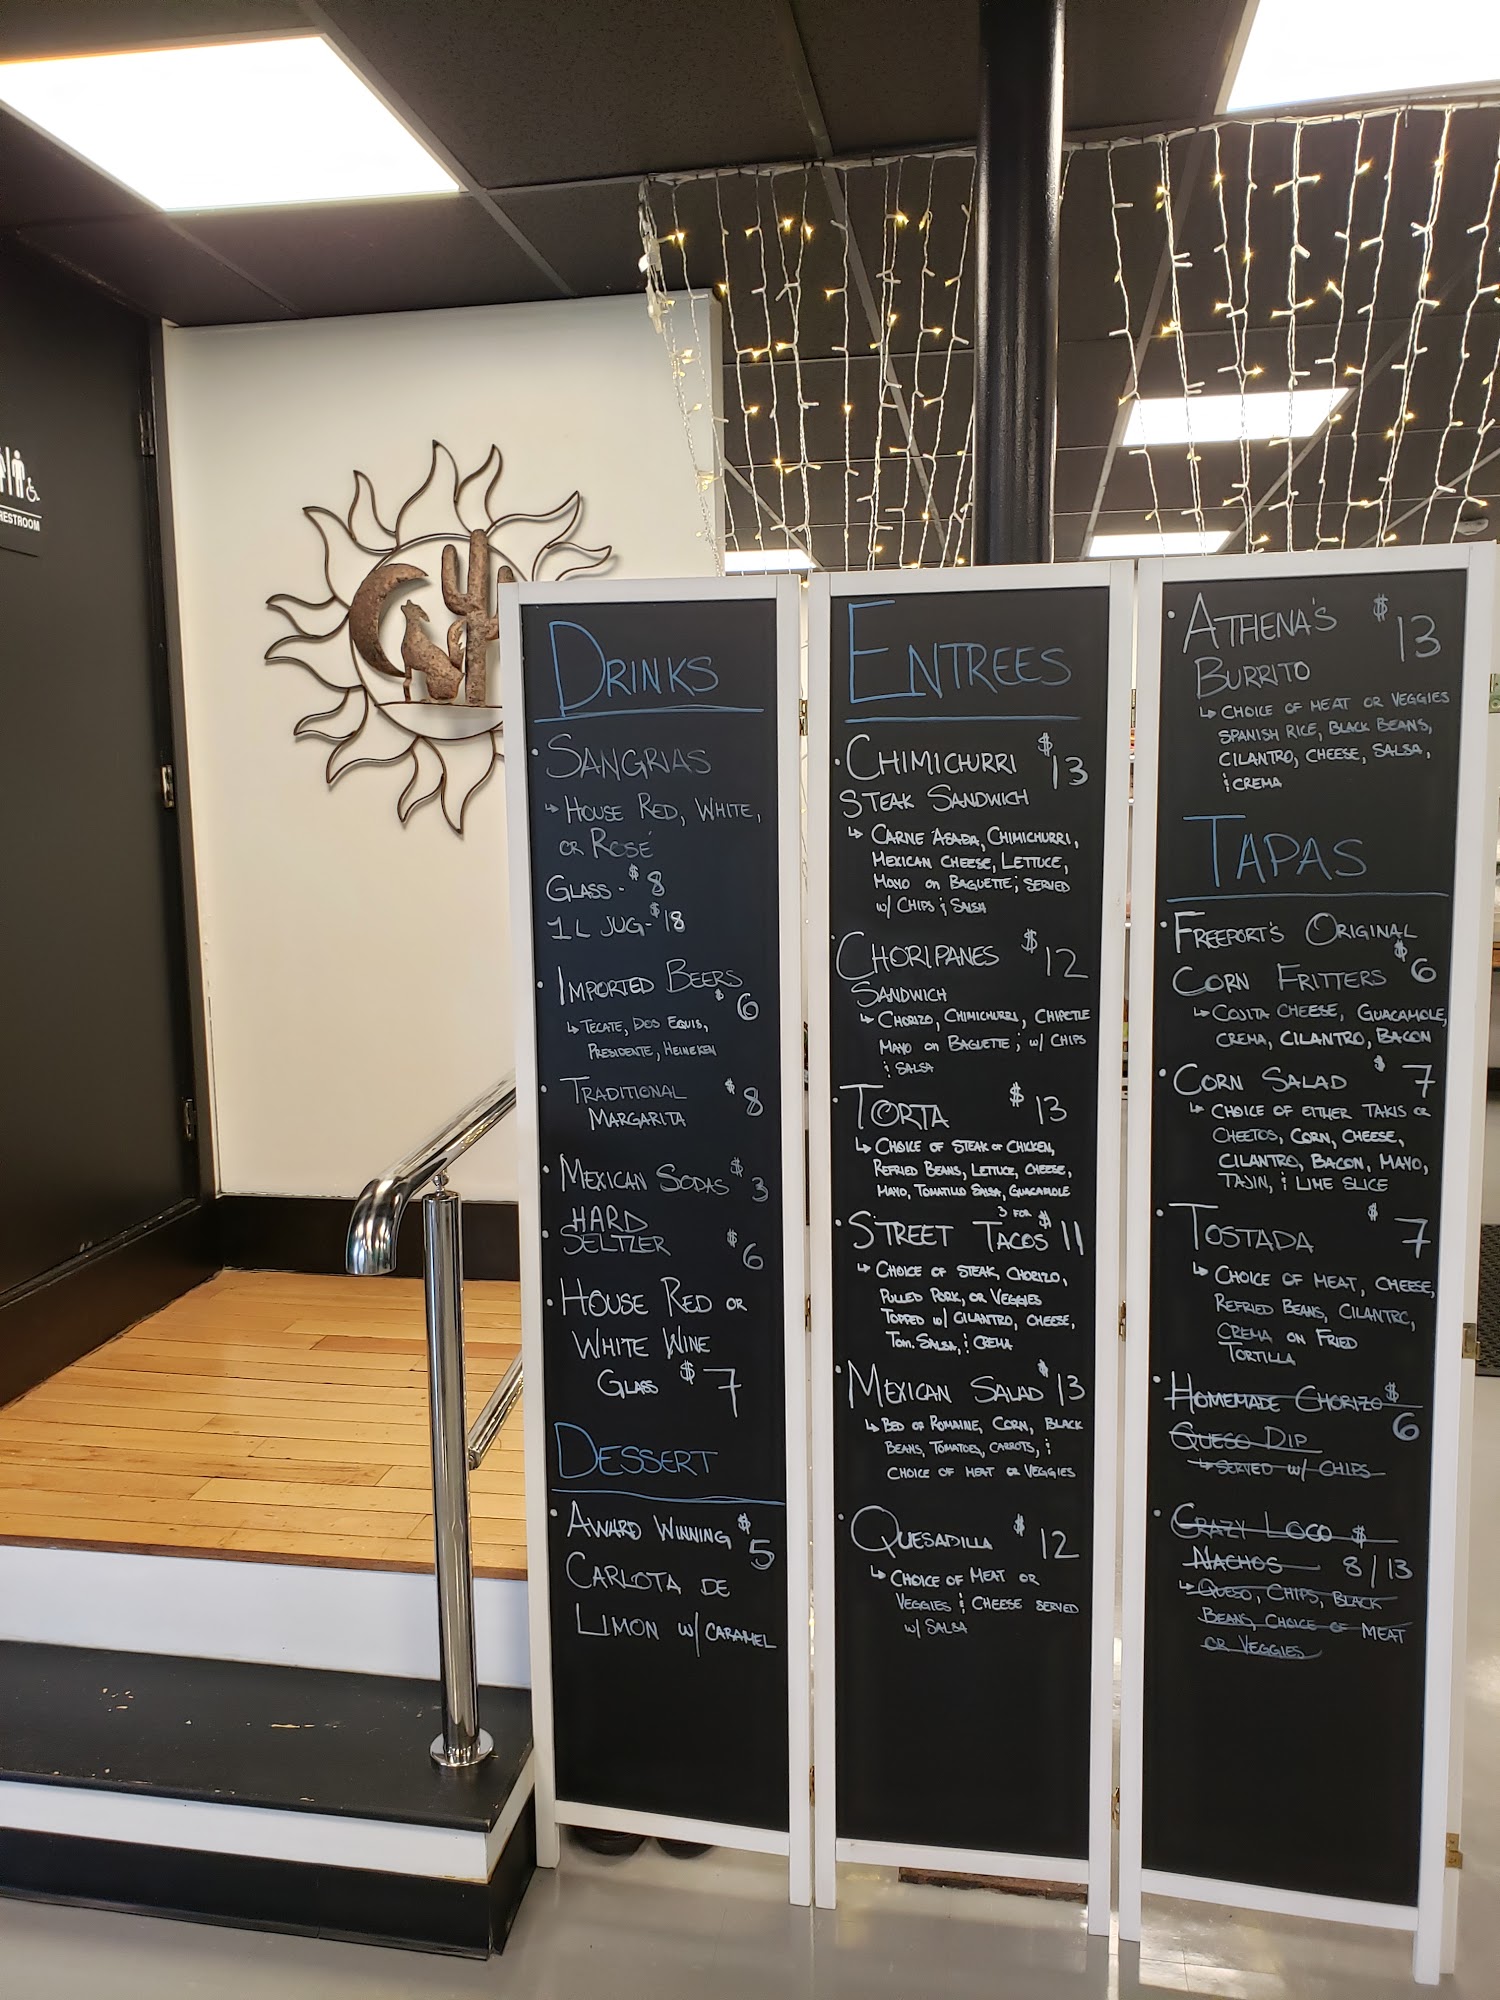 RESTROOM
DRINKS
• SANGRIAS
↳ HOUSE RED, WHITE,
OR ROSÉ
GLASS - $8
1 L JUG - $18
• IMPORTED BEERS
$6
↳ TECATE, DOS EQUIS,
PRESIDENTE, HEINEKEN
• TRADITIONAL $8
MARGARITA
• MEXICAN SODAS $3
HARD
• SELTZER $6
• HOUSE RED OR
WHITE WINE
GLASS $7
DESSERT
• AWARD WINNING $5
CARLOTA DE
LIMON W/ CARAMEL
ENTREES
• CHIMICHURRI $13
STEAK SANDWICH
↳ CARNE ASADA, CHIMICHURRI,
MEXICAN CHEESE, LETTUCE,
MAYO ON BAGUETTE; SERVED
W/ CHIPS & SALSA
• CHORIPANES $12
SANDWICH
↳ CHORIZO, CHIMICHURRI, CHIPOTLE
MAYO ON BAGUETTE; W/ CHIPS
& SALSA
• TORTA $13
↳ CHOICE OF STEAK OR CHICKEN,
REFRIED BEANS, LETTUCE, CHEESE,
MAYO, TOMATILLO SALSA, GUACAMOLE
3 FOR
• STREET TACOS $11
↳ CHOICE OF STEAK, CHORIZO,
PULLED PORK, OR VEGGIES
TOPPED W/ CILANTRO, CHEESE,
TOM. SALSA, & CREMA
• MEXICAN SALAD $13
↳ BED OF ROMAINE, CORN, BLACK
BEANS, TOMATOES, CARROTS, &
CHOICE OF MEAT OR VEGGIES
• QUESADILLA $12
↳ CHOICE OF MEAT OR
VEGGIES & CHEESE SERVED
W/ SALSA
• ATHENA'S $13
BURRITO
↳ CHOICE OF MEAT OR VEGGIES
SPANISH RICE, BLACK BEANS,
CILANTRO, CHEESE, SALSA,
& CREMA
TAPAS
• FREEPORT'S ORIGINAL
CORN FRITTERS $6
↳ COJITA CHEESE, GUACAMOLE,
CREMA, CILANTRO, BACON
• CORN SALAD $7
↳ CHOICE OF EITHER TAKIS OR
CHEETOS, CORN, CHEESE,
CILANTRO, BACON, MAYO,
TAJIN, & LIME SLICE
• TOSTADA $7
↳ CHOICE OF MEAT, CHEESE,
REFRIED BEANS, CILANTRO,
CREMA ON FRIED
TORTILLA
• HOMEMADE CHORIZO $6
QUESO DIP
↳ SERVED W/ CHIPS
• CRAZY LOCO $
NACHOS 8/13
↳ QUESO, CHIPS, BLACK
BEANS, CHOICE OF MEAT
OR VEGGIES